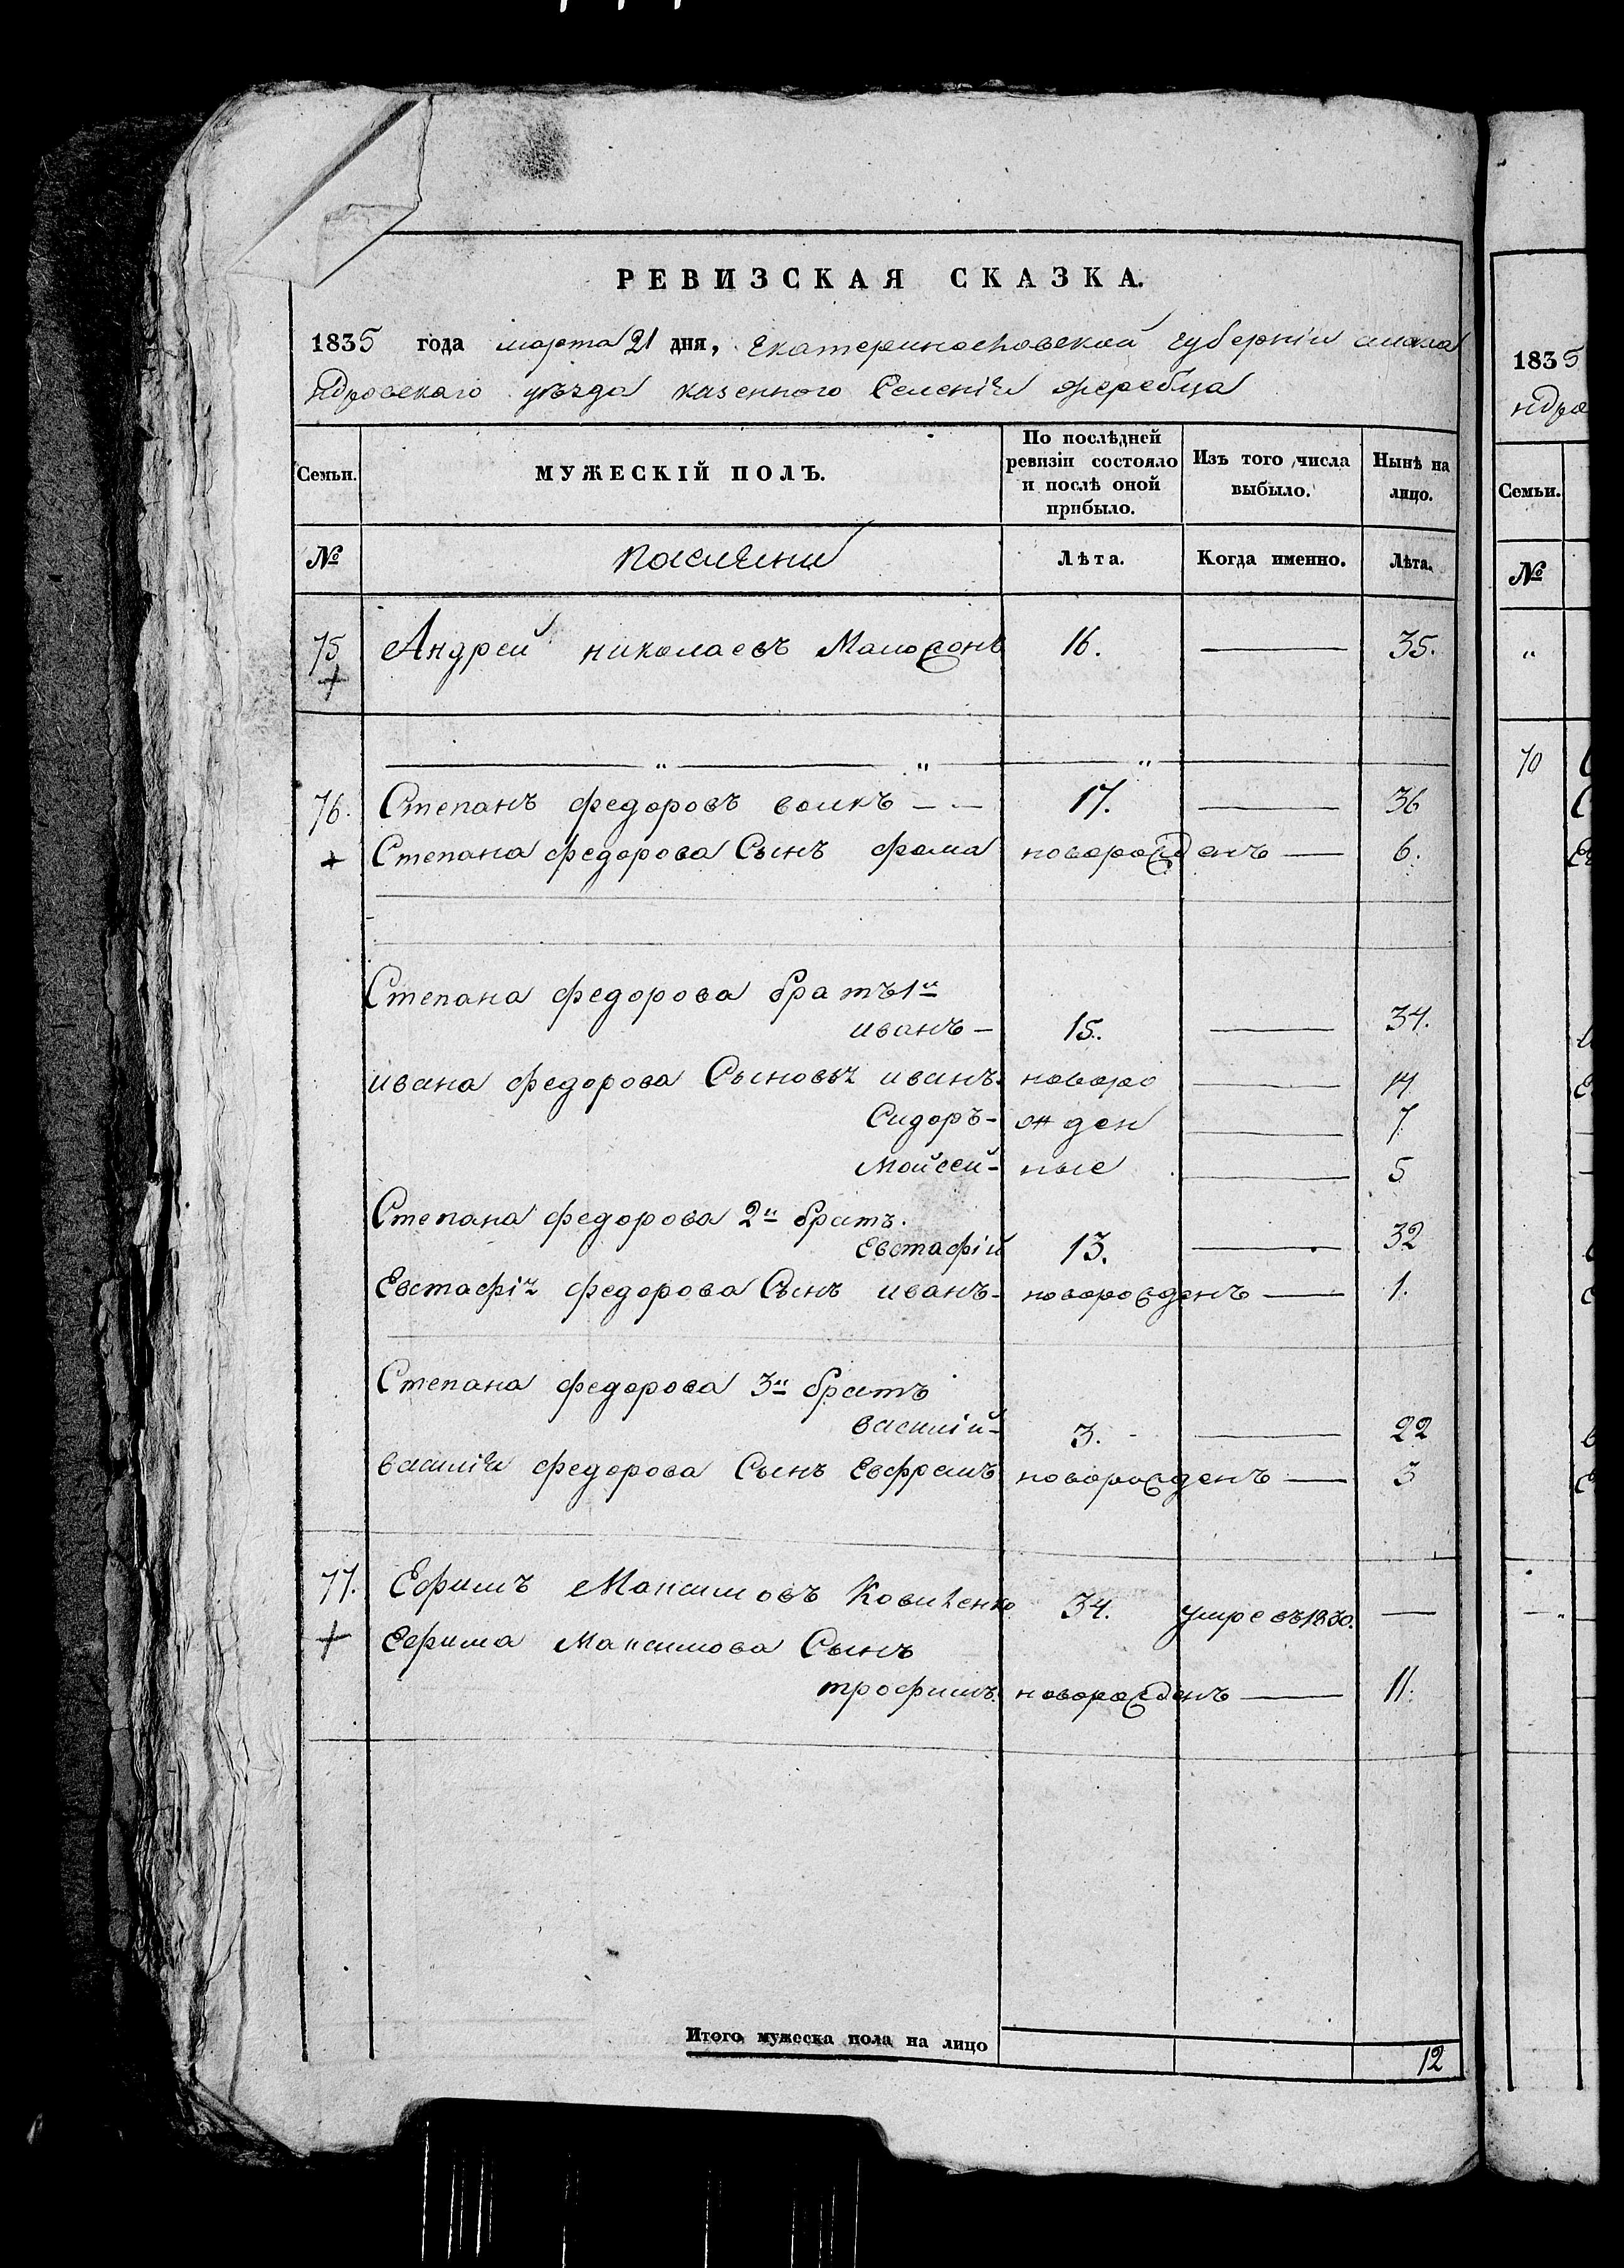 РЕВИЗСКАЯ СКАЗКА.
1835 года марта 21 дня, Екатеринославской губерніи алекса
ндровскаго уѣзда казенного Селенія жеребца
Семьи. МУЖЕСКІЙ ПОЛЪ. По послѣдней ревизіи состояло и послѣ оной прибыло. Изъ того числа выбыло. Нынѣ на лицо.
№ поселяни Лѣта. Когда именно. Лѣта.
75 Андрей николаевъ 16. — 35.
76. Степанъ федоровъ волкъ — — 17. — 36
Степана федорова Сынъ фома новорожденъ — 6.
Степана федорова братъ 1й
иванъ — 15. — 34.
ивана федорова Сыновья иванъ новоро — 14
Сидоръ - жден — 7
Мойсей - ные — 5
Степана федорова 2й братъ.
Евстафій 13. — 32
Евстафія федорова Сынъ иванъ - новорожденъ — 1.
Степана федорова 3й братъ
василій - 3. - — 22
василія федорова Сынъ Евфремъ новорожденъ — 3
77. Ефимъ Максимовъ 34. умре въ 1830. —
Ефима Максимова Сынъ
трофимъ новорожденъ — 11.
Итого мужеска пола на лицо 12
1835
ндро
Семьи.
№
"
70